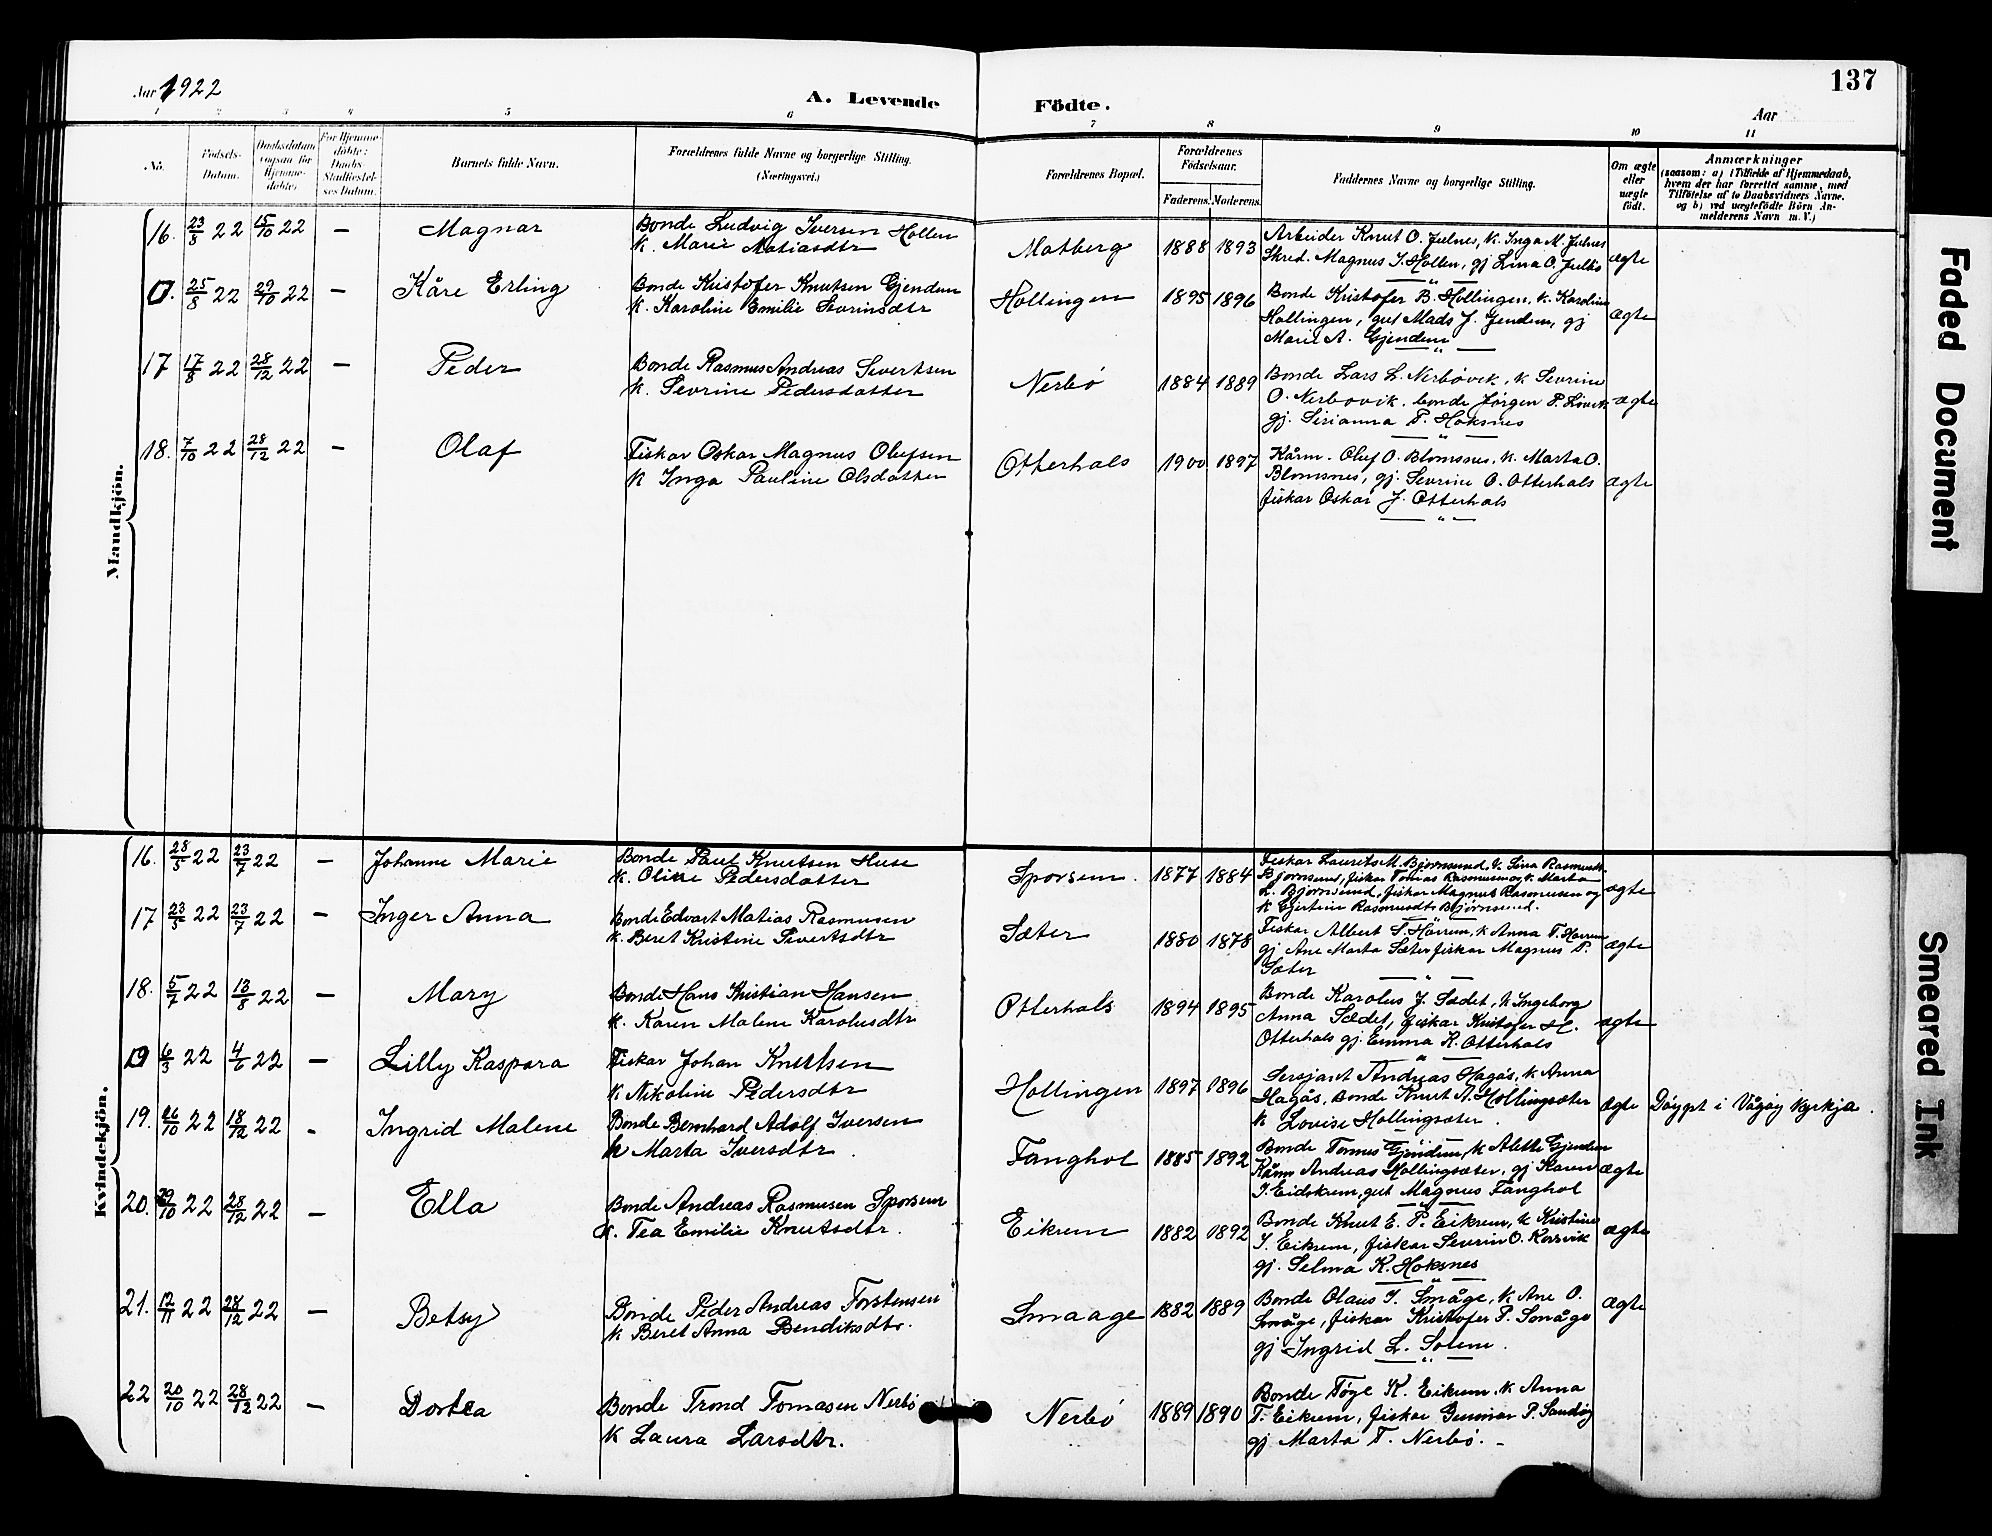 Aar 1922
A. Levende Födte.
137
Aar
1 2 3 4 5 6 7 8 9 10 11
No.
Födsels-Datum.
Daabsdatum (ogsaa for Hjemme-döbte).
For Hjemme-döbte: Daabs Stadfæstel-ses Datum.
Barnets fulde Navn.
Forældrenes fulde Navne og borgerlige Stilling.
(Næringsvei.)
Forældrenes Bopæl.
Forældrenes Födselsaar.
Faderens. Moderens.
Faddernes Navne og borgerlige Stilling.
Om ægte eller uægte födt.
Anmærkninger
(saasom: a) i Tilfælde af Hjemmedaab,
hvem der har forrettet samme, med
Tilföielse af to Daabsvidners Navne.
og b) ved uægtefödte Börn An-
melderens Navn m. V.)
Mandkjön.
16. 23/8 22 15/10 22 — Magnar
Bonde Ludvig Iversen Hollen
k. Marie Matiasdtr
Malberg 1888 1893
Arbeider Knut O. Julnes, k. Inga M. Julnes
Skred. Magnus I. Hollen, gj Lina O. Julbö
ægte
0. 25/8 22 29/10 22 — Kåre Erling
Bonde Kristofer Knutsen Gjendem
k. Karoline Emilie Severinsdtr
Hollingen 1895 1896
Bonde Kristofer B. Hollingen, k. Karoline
Hollingen, gut Mads J. Jendem, gj
Marie A. Gjendem
ægte
17 17/8 22 28/12 22 — Peder
Bonde Rasmus Andreas Sivertsen
k. Sevrine Pedersdatter
Nerbö 1884 1889
Bonde Lars L. Nerbövik, k Sevrine
O. Nerbovik, bonde Jørgen P. Lövik
gj. Sirianna P. Hoksnes
ægte
18. 7/10 22 28/12 22 — Olaf
Fiskar Oskar Magnus Olufsen
k Inga Pauline Olsdatter
Otterhals 1900 1897
Kårm. Oluf O. Blomsnes, k. Marta O.
Blomsnes, gj. Sevrine O. Otterhals
fiskar Oskar J. Otterhals
ægte
Kvindekjön.
16. 28/5 22 23/7 22 — Johanne Marie
Bonde Paul Knutsen Huse
k. Oline Pedersdatter
Sporsem. 1877 1884
Fiskar Laurits M. Bjørnsund, k Lina Rasmusdtr
Bjørnsund, fiskar Tomas Rasmussen og k. Marta
L. Bjørnsund, fiskar Magnus Rasmussen og
k Gjertine Rasmusdtr Bjørnsund.
ægte
17 23/5 22 23/7 22 — Inger Anna
Bonde Edvart Matias Rasmusen
k. Beret Kristine Sivertsdtr
Sæter 1880 1878
Fiskar Albert T. Harrem, k Anna T. Harrem
gj Ane Marta Sæter fiskar Magnus P.
Sæter
ægte
18. 5/7 22 13/8 22 — Mary
Bonde Hans Kristian Hansen
k. Karen Malene Karolusdtr
Otterhals 1894 1895
Bonde Karolus J. Sædet, k Ingeborg
Anna Sædet, fiskar Kristofer H.
Otterhals gj Emma K. Otterhals
ægte
0 6/3 22 4/6 22 — Lilly Kaspara
Fiskar Johan Knutsen
k. Nikoline Pedersdtr
Hollingen 1897 1896
Sersjant Andreas Hagås, k Anna
Hagås, Bonde Knut A. Hollingsæter
k Lovise Hollingsæter.
ægte Döypt i Vågöy kyrkja.
19. 26/10 22 18/12 22 - Ingrid Malene
Bonde Bernhard Adolf Iversen
k Marta Iversdtr.
Fanghol 1885 1892
Bonde Tomas Gjendem, k Alette Gjendem
Kårm Andreas Hollingsæter, gj Karen
I. Eidskrem, gut Magnus Fanghol
ægte
20. 29/10 22 28/12 22 — Ella
Bonde Andreas Rasmusen Sporsem
k. Tea Emilie Knutsdtr.
Eikrem 1882 1892
Bonde Knut E. P. Eikrem, k Kristine
I. Eikrem, fiskar Severin O. Korsvik
gj. Selma K. Hoksnes
ægte
21. 12/11 22 28/12 22 — Betsy
Bonde Peder Andreas Torstensen
k Beret Anna Bendiksdtr.
Smaage 1882 1889
Bonde Olaus I. Småge, k Ane O.
Småge, fiskar Kristofer P. Småge
gj Ingrid L. Solem.
ægte
22 20/10 22 28/12 22 — Dortea
Bonde Trond Tomasen Nerbö
k Laura Larsdtr.
Nerbö 1889 1890
Bonde Töge K. Eikrem, k Anna
T. Eikrem, fiskar Gunnar P. Sandöy
gj Marta T. Nerbö.
Faded Document
Smeared Ink